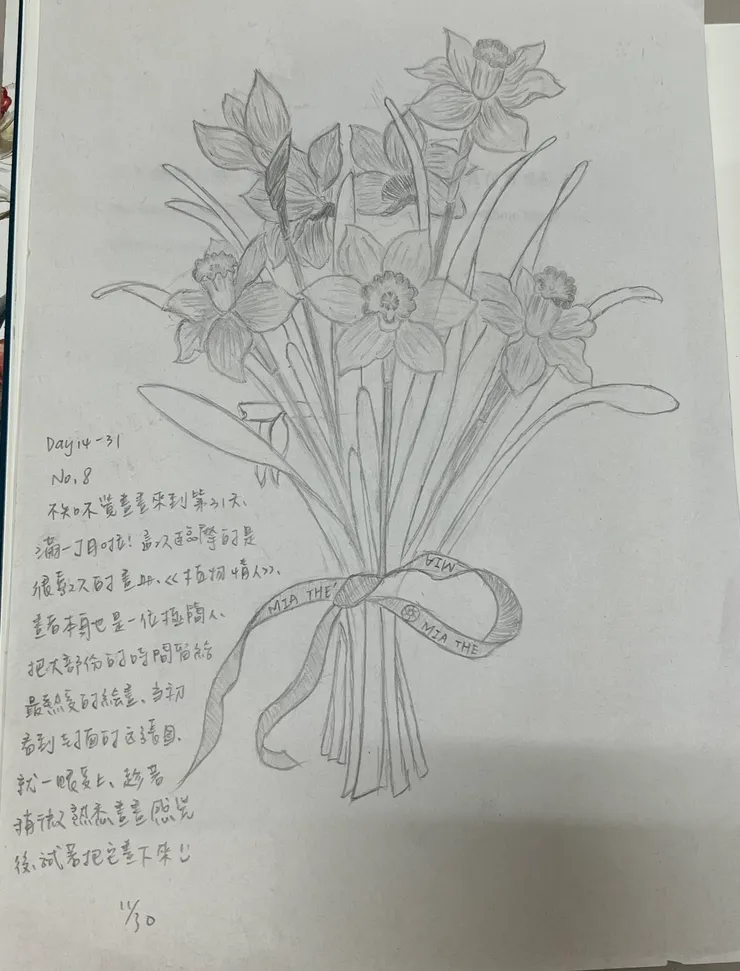 Day14-31
No.8
不知不覺畫畫來到第31天、
滿一個月啦！這次臨摹的是
很喜歡的畫冊、《植物情人》、
畫者本身也是一位極簡人、
把大部份的時間留給
最熱愛的繪畫、当初
看到封面的这張圖、
就一眼愛上、趁著
稍微熟悉畫畫感覺
後、試著把它畫下來
11/30
MIA THE
MIA
MIA THE